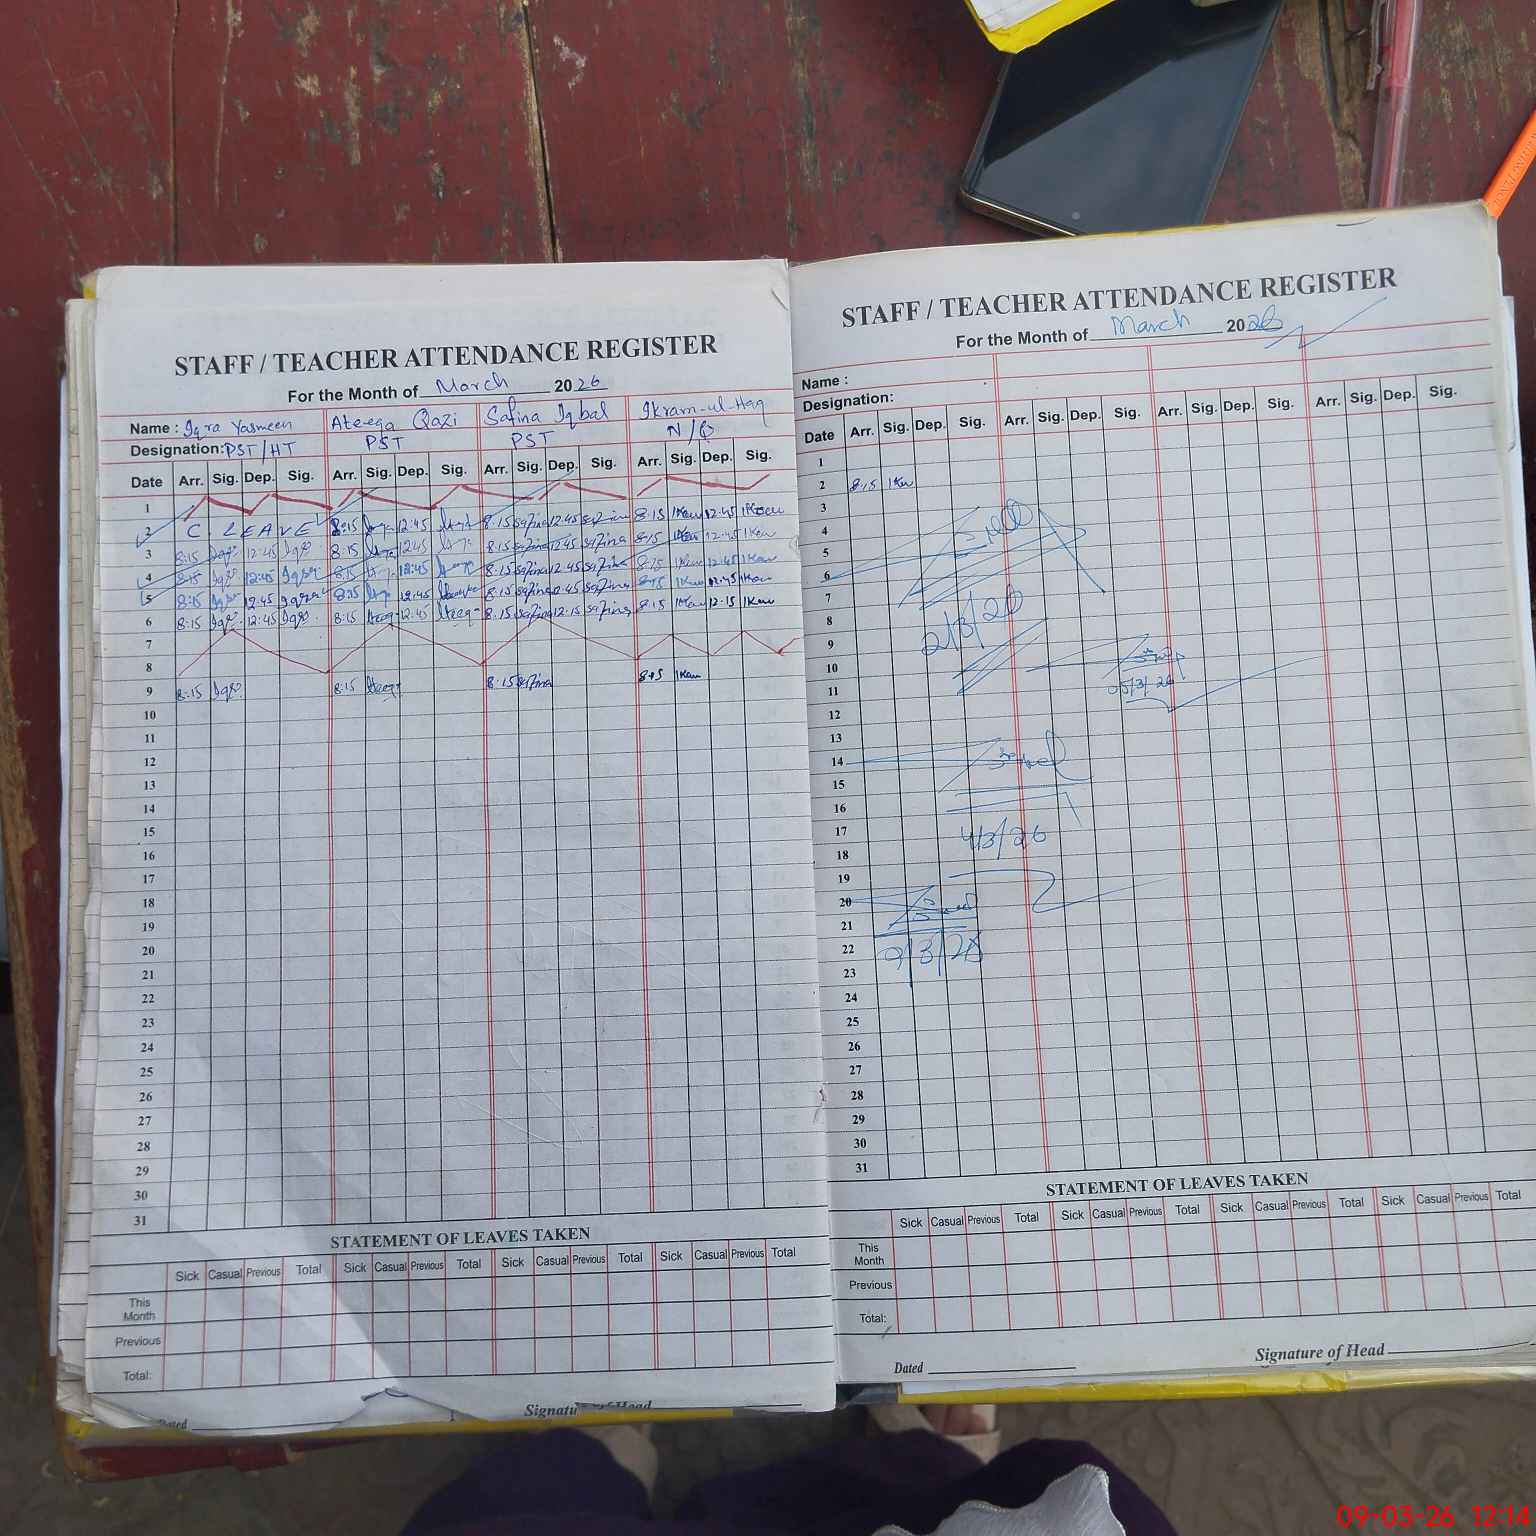 STAFF / TEACHER ATTENDANCE REGISTER
For the Month of March 2026
Name : Iqra Yasmeen Ateeqa Qazi Safina Iqbal Ikram-ul-Haq
Designation: PST/HT PST PST N/Q
Date Arr. Sig. Dep. Sig. Arr. Sig. Dep. Sig. Arr. Sig. Dep. Sig. Arr. Sig. Dep. Sig.
1
2 C LEAVE 8:15 12:45 8:15 Safina 12:45 Safina 8:15 12:45
3 8:15 Iqra 12:45 Iqra 8:15 12:45 8:15 Safina 12:45 Safina 8:15 12:45
4 8:15 Iqra 12:45 Iqra 8:15 12:45 8:15 Safina 12:45 Safina 8:15 12:45
5 8:15 Iqra 12:45 Iqra 8:15 12:45 8:15 Safina 12:45 Safina 8:15 12:45
6 8:15 Iqra 12:45 Iqra 8:15 Ateeq 12:45 Ateeq 8:15 Safina 12:15 Safina 8:15 12:15
7
8
9 8:15 Iqra 8:15 Ateeq 8:15 Safina 8:15
10
11
12
13
14
15
16
17
18
19
20
21
22
23
24
25
26
27
28
29
30
31
STATEMENT OF LEAVES TAKEN
Sick Casual Previous Total Sick Casual Previous Total Sick Casual Previous Total Sick Casual Previous Total
This Month
Previous
Total:
Dated Signature of Head
STAFF / TEACHER ATTENDANCE REGISTER
For the Month of March 2026
Name :
Designation:
Date Arr. Sig. Dep. Sig. Arr. Sig. Dep. Sig. Arr. Sig. Dep. Sig. Arr. Sig. Dep. Sig.
1
2 8:15
3
4
5
6
7
8 2/3/26
9
10
11 05/3/26
12
13
14
15
16
17 4/3/26
18
19
20
21
22 9/3/26
23
24
25
26
27
28
29
30
31
STATEMENT OF LEAVES TAKEN
Sick Casual Previous Total Sick Casual Previous Total Sick Casual Previous Total Sick Casual Previous Total
This Month
Previous
Total:
Dated Signature of Head
09-03-26 12:14